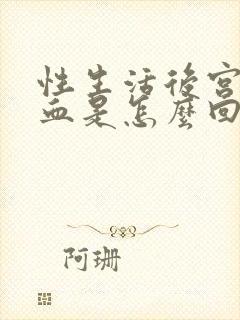 性生活後宮
血是怎麼回
阿珊